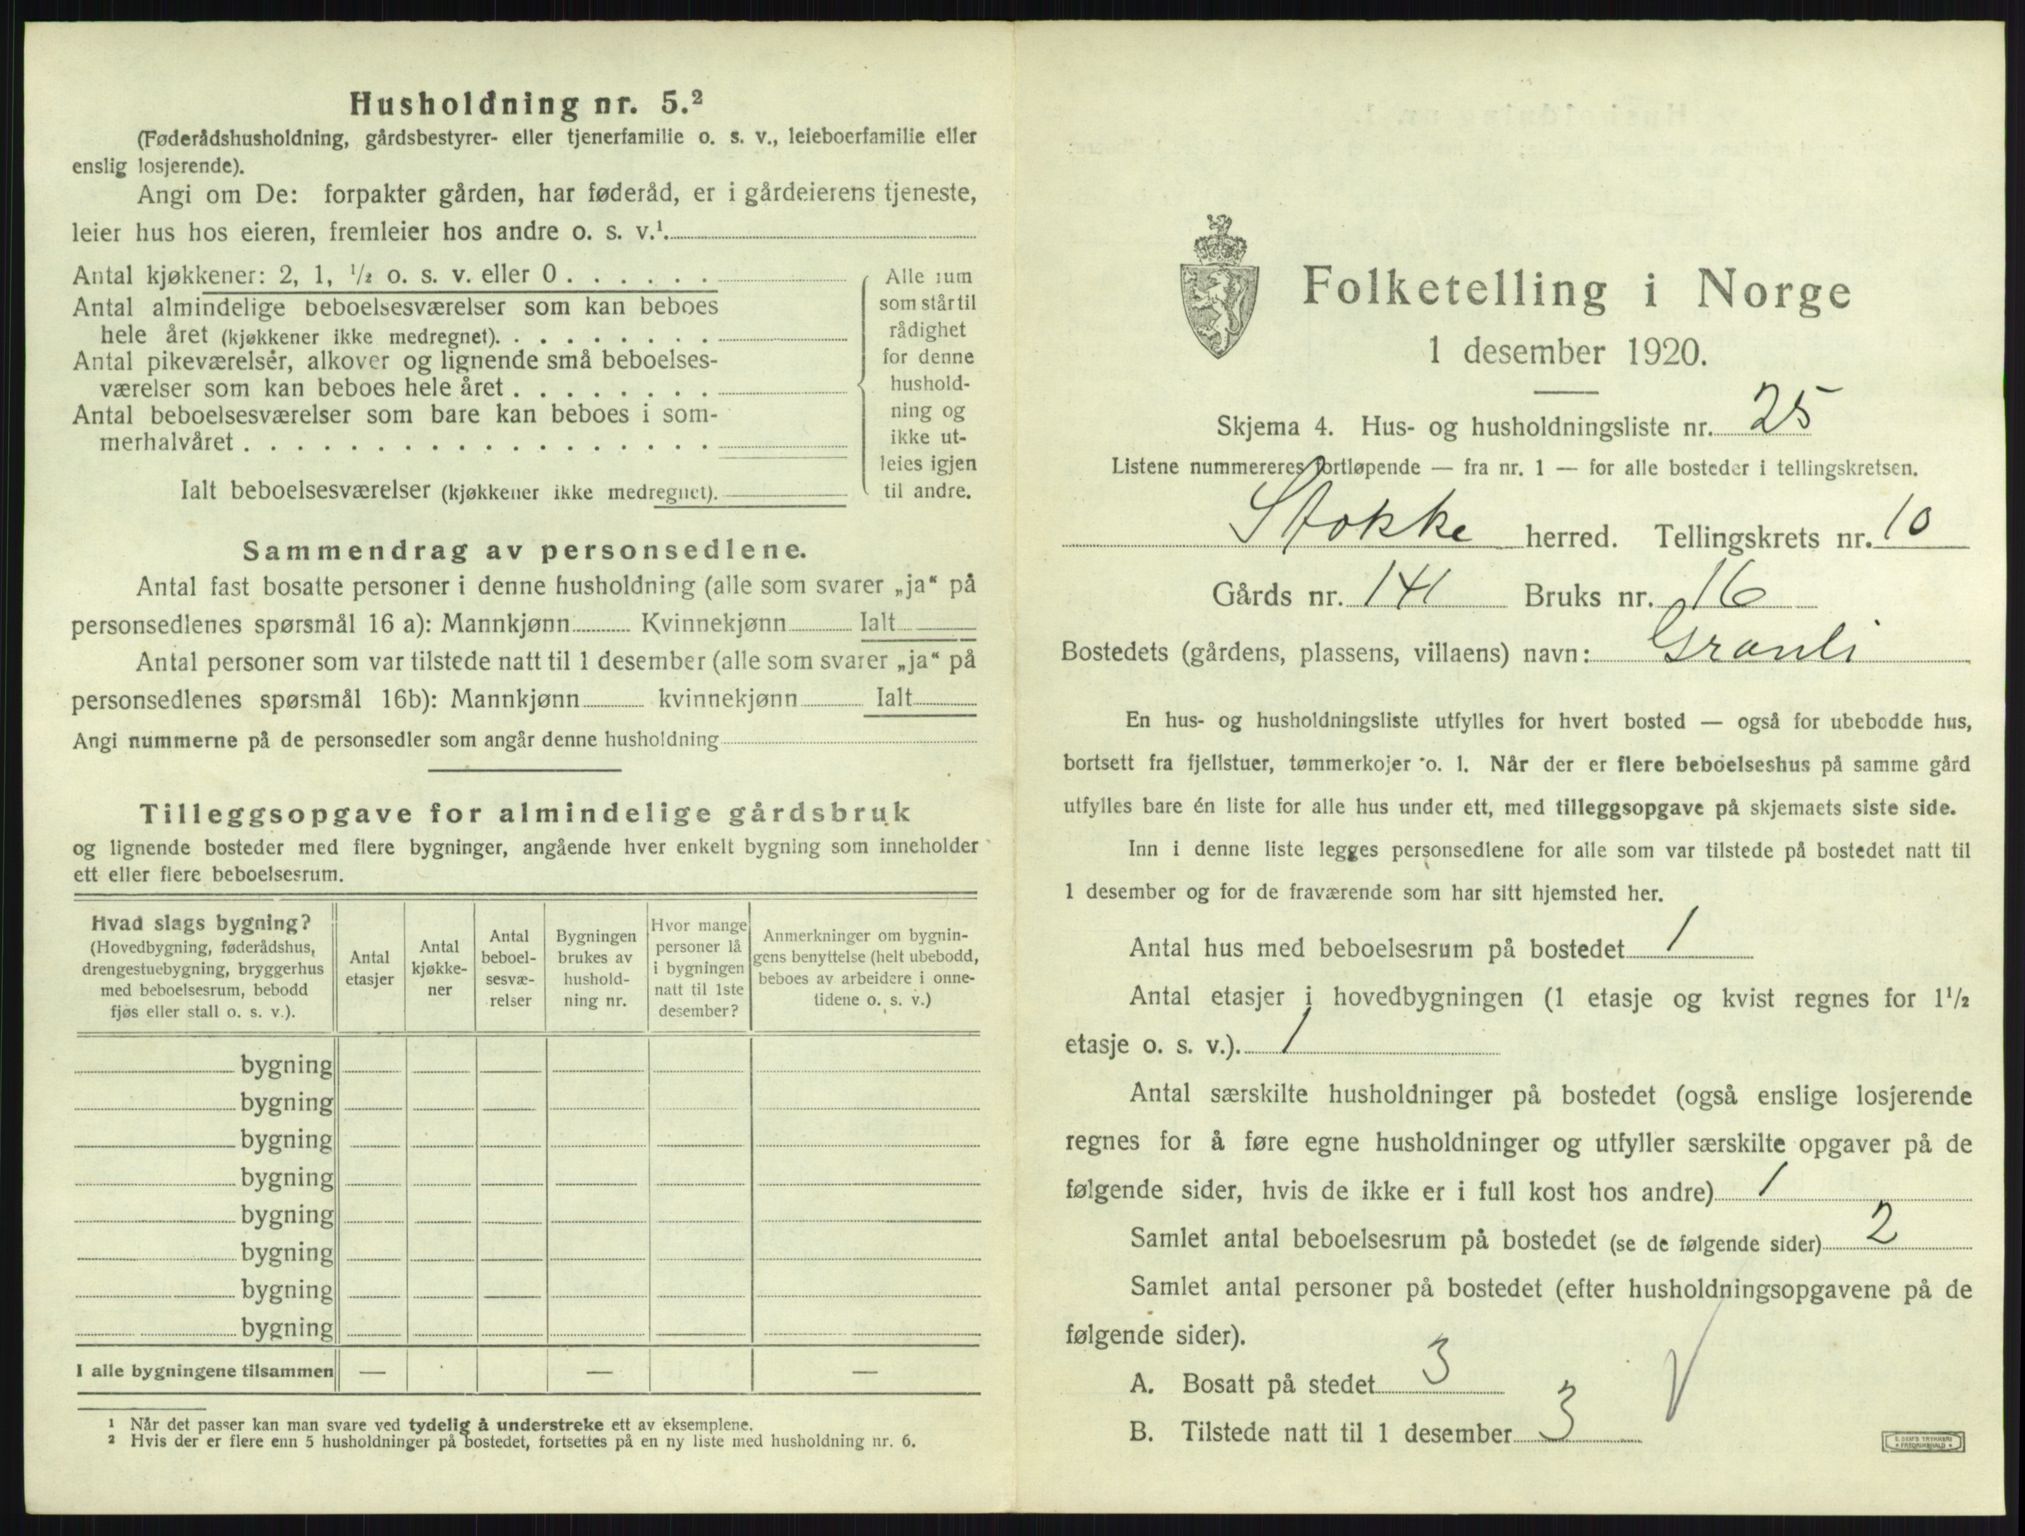 Husholdning nr. 5.²
(Føderådshusholdning, gårdsbestyrer- eller tjenerfamilie o. s. v., leieboerfamilie eller
enslig losjerende).
Angi om De: forpakter gården, har føderåd, er i gårdeierens tjeneste,
leier hus hos eieren, fremleier hos andre o. s. v.¹.
Antal kjøkkener: 2, 1, ½ o. s. v. eller 0 . . . . . .
Antal almindelige beboelsesværelser som kan beboes
hele året (kjøkkener ikke medregnet). . . . . . . . .
Antal pikeværelser, alkover og lignende små beboelses-
værelser som kan beboes hele året . . . . . . . .
Antal beboelsesværelser som bare kan beboes i som-
merhalvåret . . . . . . . . . . . . . . . . . .
Ialt beboelsesværelser (kjøkkener ikke medregnet).
Alle rum
som står til
rådighet
for denne
hushold-
ning og
ikke ut-
leies igjen
til andre.
Sammendrag av personsedlene.
Antal fast bosatte personer i denne husholdning (alle som svarer „ja“ på
personsedlenes spørsmål 16 a): Mannkjønn Kvinnekjønn Ialt
Antal personer som var tilstede natt til 1 desember (alle som svarer „ja“ på
personsedlenes spørsmål 16b): Mannkjønn kvinnekjønn Ialt
Angi nummerne på de personsedler som angår denne husholdning
Tilleggsopgave for almindelige gårdsbruk
og lignende bosteder med flere bygninger, angående hver enkelt bygning som inneholder
ett eller flere beboelsesrum.
Hvad slags bygning?
(Hovedbygning, føderådshus,
drengestuebygning, bryggerhus
med beboelsesrum, bebodd
fjøs eller stall o. s. v.).
Antal
etasjer
Antal
kjøkke-
ner
Antal
beboel-
sesvæ-
relser
Bygningen
brukes av
hushold-
ning nr.
Hvor mange
personer lå
i bygningen
natt til 1ste
desember?
Anmerkninger om bygnin-
gens benyttelse (helt ubebodd,
beboes av arbeidere i onne-
tidene o. s. v.)
bygning
bygning
bygning
bygning
bygning
bygning
bygning
bygning
I alle bygningene tilsammen — — —
¹ Når det passer kan man svare ved tydelig å understreke ett av eksemplene.
² Hvis der er flere enn 5 husholdninger på bostedet, fortsettes på en ny liste med husholdning nr. 6.
Folketelling i Norge
1 desember 1920.
Skjema 4. Hus- og husholdningsliste nr. 25
Listene nummereres fortløpende — fra nr. 1 — for alle bosteder i tellingskretsen.
Stokke herred. Tellingskrets nr. 10
Gårds nr. 141 Bruks nr. 16
Bostedets (gårdens, plassens, villaens) navn: Granli
En hus- og husholdningsliste utfylles for hvert bosted — også for ubebodde hus,
bortsett fra fjellstuer, tømmerkojer o. l. Når der er flere beboelseshus på samme gård
utfylles bare én liste for alle hus under ett, med tilleggsopgave på skjemaets siste side.
Inn i denne liste legges personsedlene for alle som var tilstede på bostedet natt til
1 desember og for de fraværende som har sitt hjemsted her.
Antal hus med beboelsesrum på bostedet 1
Antal etasjer i hovedbygningen (1 etasje og kvist regnes for 1½
etasje o. s. v.). 1
Antal særskilte husholdninger på bostedet (også enslige losjerende
regnes for å føre egne husholdninger og utfyller særskilte opgaver på de
følgende sider, hvis de ikke er i full kost hos andre) 1
Samlet antal beboelsesrum på bostedet (se de følgende sider) 2
Samlet antal personer på bostedet (efter husholdningsopgavene på de
følgende sider).
A. Bosatt på stedet 3
B. Tilstede natt til 1 desember 3